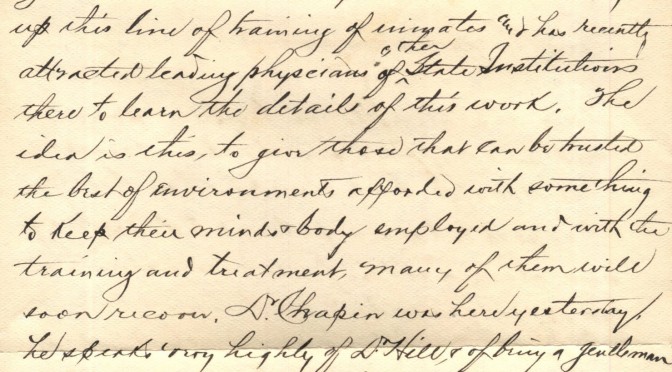 up this line of training of inmates and has recently
attracted leading physicians of other State Institutions
there to learn the details of this work. The
idea is this, to give those that can be trusted
the best of environments afforded with something
to keep their minds & body employed and with the
training and treatment, many of them will
soon recover. Dr. Chapin was here yesterday,
he speaks very highly of Dr Hill, & of being a gentleman